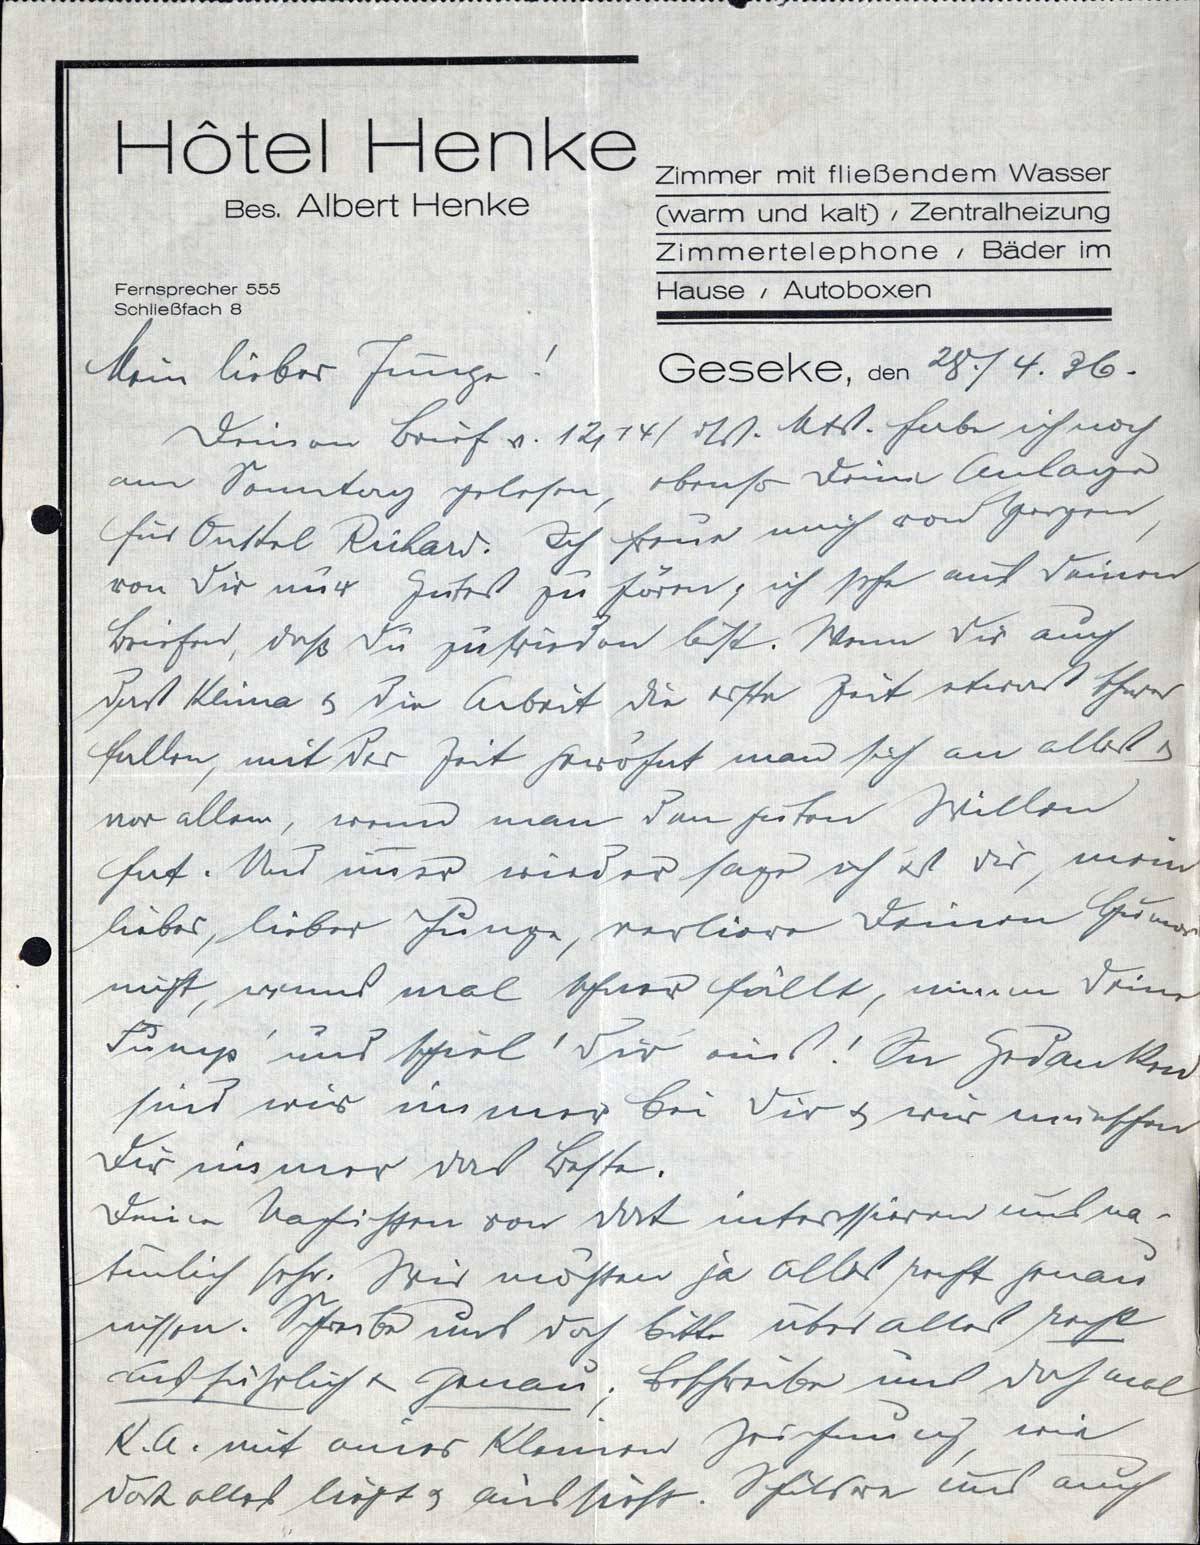 Hôtel Henke
Bes. Albert Henke
Fernsprecher 555
Schließfach 8
Zimmer mit fließendem Wasser
(warm und kalt) / Zentralheizung
Zimmertelephone / Bäder im
Hause / Autoboxen
Geseke, den 28./4. 36.
Mein lieber Junge!
Deinen Brief v. 12./14/ ds. Mts. habe ich noch
am Sonntag gelesen, ebenso Deine Anlage
für Onkel Richard. Ich freue mich von Herzen,
von Dir nur Gutes zu hören; ich sehe aus Deinen
Briefen, daß Du zufrieden bist. Wenn Dir auch
das Klima & die Arbeit die erste Zeit etwas schwer
fallen, mit der Zeit gewöhnt man sich an alles &
vor allem, wenn man den guten Willen
hat. Und immer wieder sage ich es Dir, mein
lieber, lieber Junge, verliere Deinen Humor
nicht, wenns mal schwer fällt, nimm Deine
und spiel' Dir eins! In Gedanken
sind wir immer bei Dir & wir wünschen
Dir immer das Beste.
Deine Nachrichten von dort interessieren uns na-
türlich sehr. Wir möchten ja alles recht genau
wissen. Schreibe uns doch bitte über alles recht
ausführlich & genau; beschreibe uns doch mal
K.A. mit einer kleinen Zeichnung, wie
dort alles liegt & aussieht. Schildre uns auch